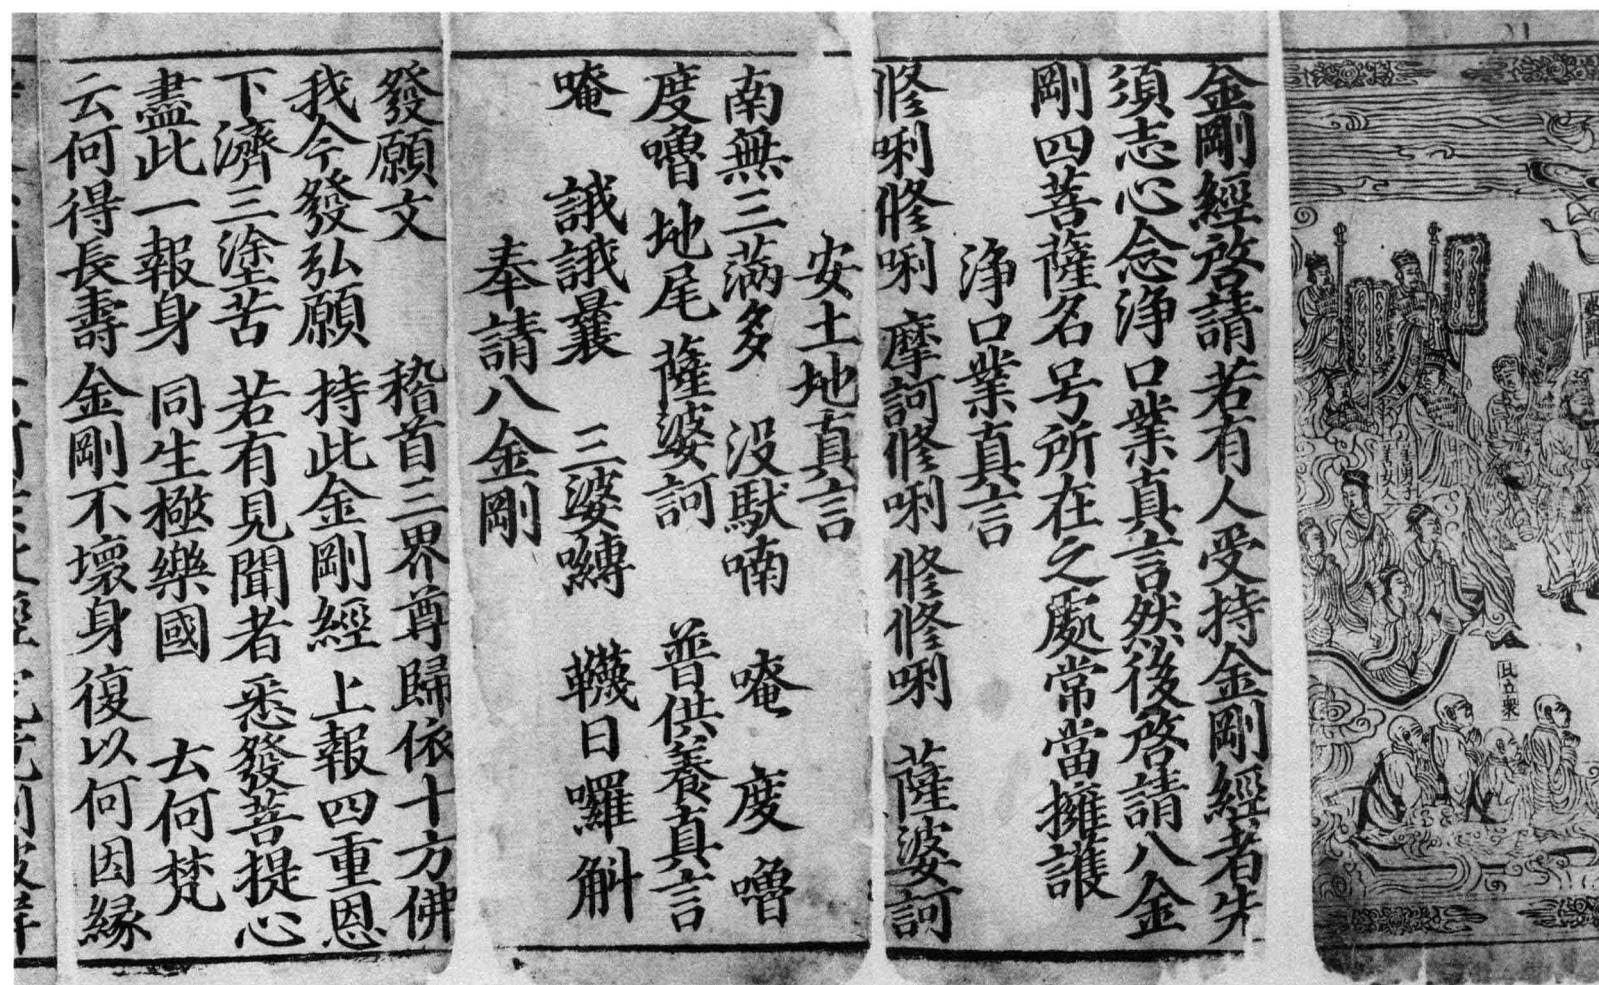 比丘衆
金剛經啓請若有人受持金剛經者先
須志心念浄口業真言然後啓請八金
剛四菩薩名号所在之處常當擁護
浄口業真言
修唎修唎 摩訶修唎 修修唎 薩婆訶
安土地真言
南無三滿多 没馱喃 唵 度嚕
度嚕地尾 薩婆訶 普供養真言
唵 誐誐曩 三婆嚩 韈日囉斛
奉請八金剛
發願文 稽首三界尊歸依十方佛
我今發弘願 持此金剛經 上報四重恩
下濟三塗苦 若有見聞者 悉發菩提心
盡此一報身 同生極樂國 云何梵
云何得長壽 金剛不壞身 復以何因縁